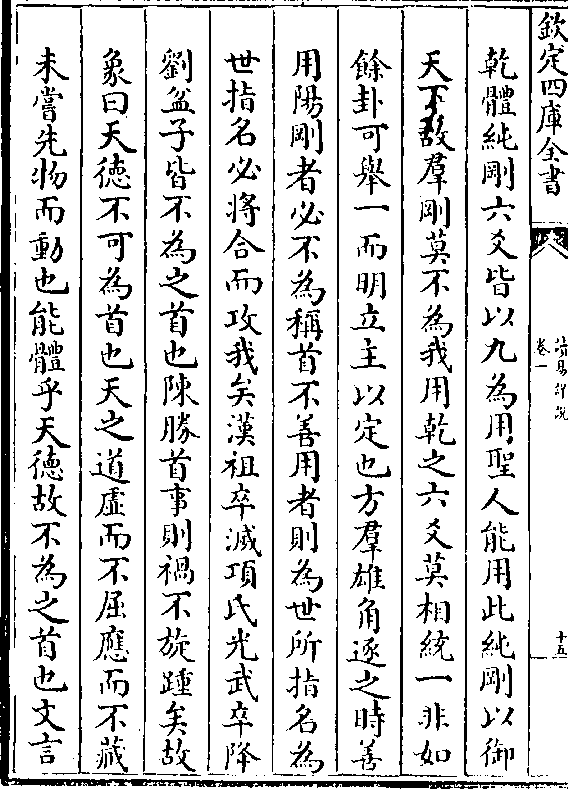 欽定四庫全書
讀易詳說
卷一
十五
乾體純剛六爻皆以九為用聖人能用此純剛以御
天下故羣剛莫不為我用乾之六爻莫相統一非如
餘卦可舉一而明立主以定也方羣雄角逐之時善
用陽剛者必不為稱首不善用者則為世所指名為
世指名必將合而攻我矣漢祖卒滅項氏光武卒降
劉盆子皆不為之首也陳勝首事則禍不旋踵矣故
象曰天德不可為首也天之道虛而不屈應而不藏
未嘗先物而動也能體乎天德故不為之首也文言